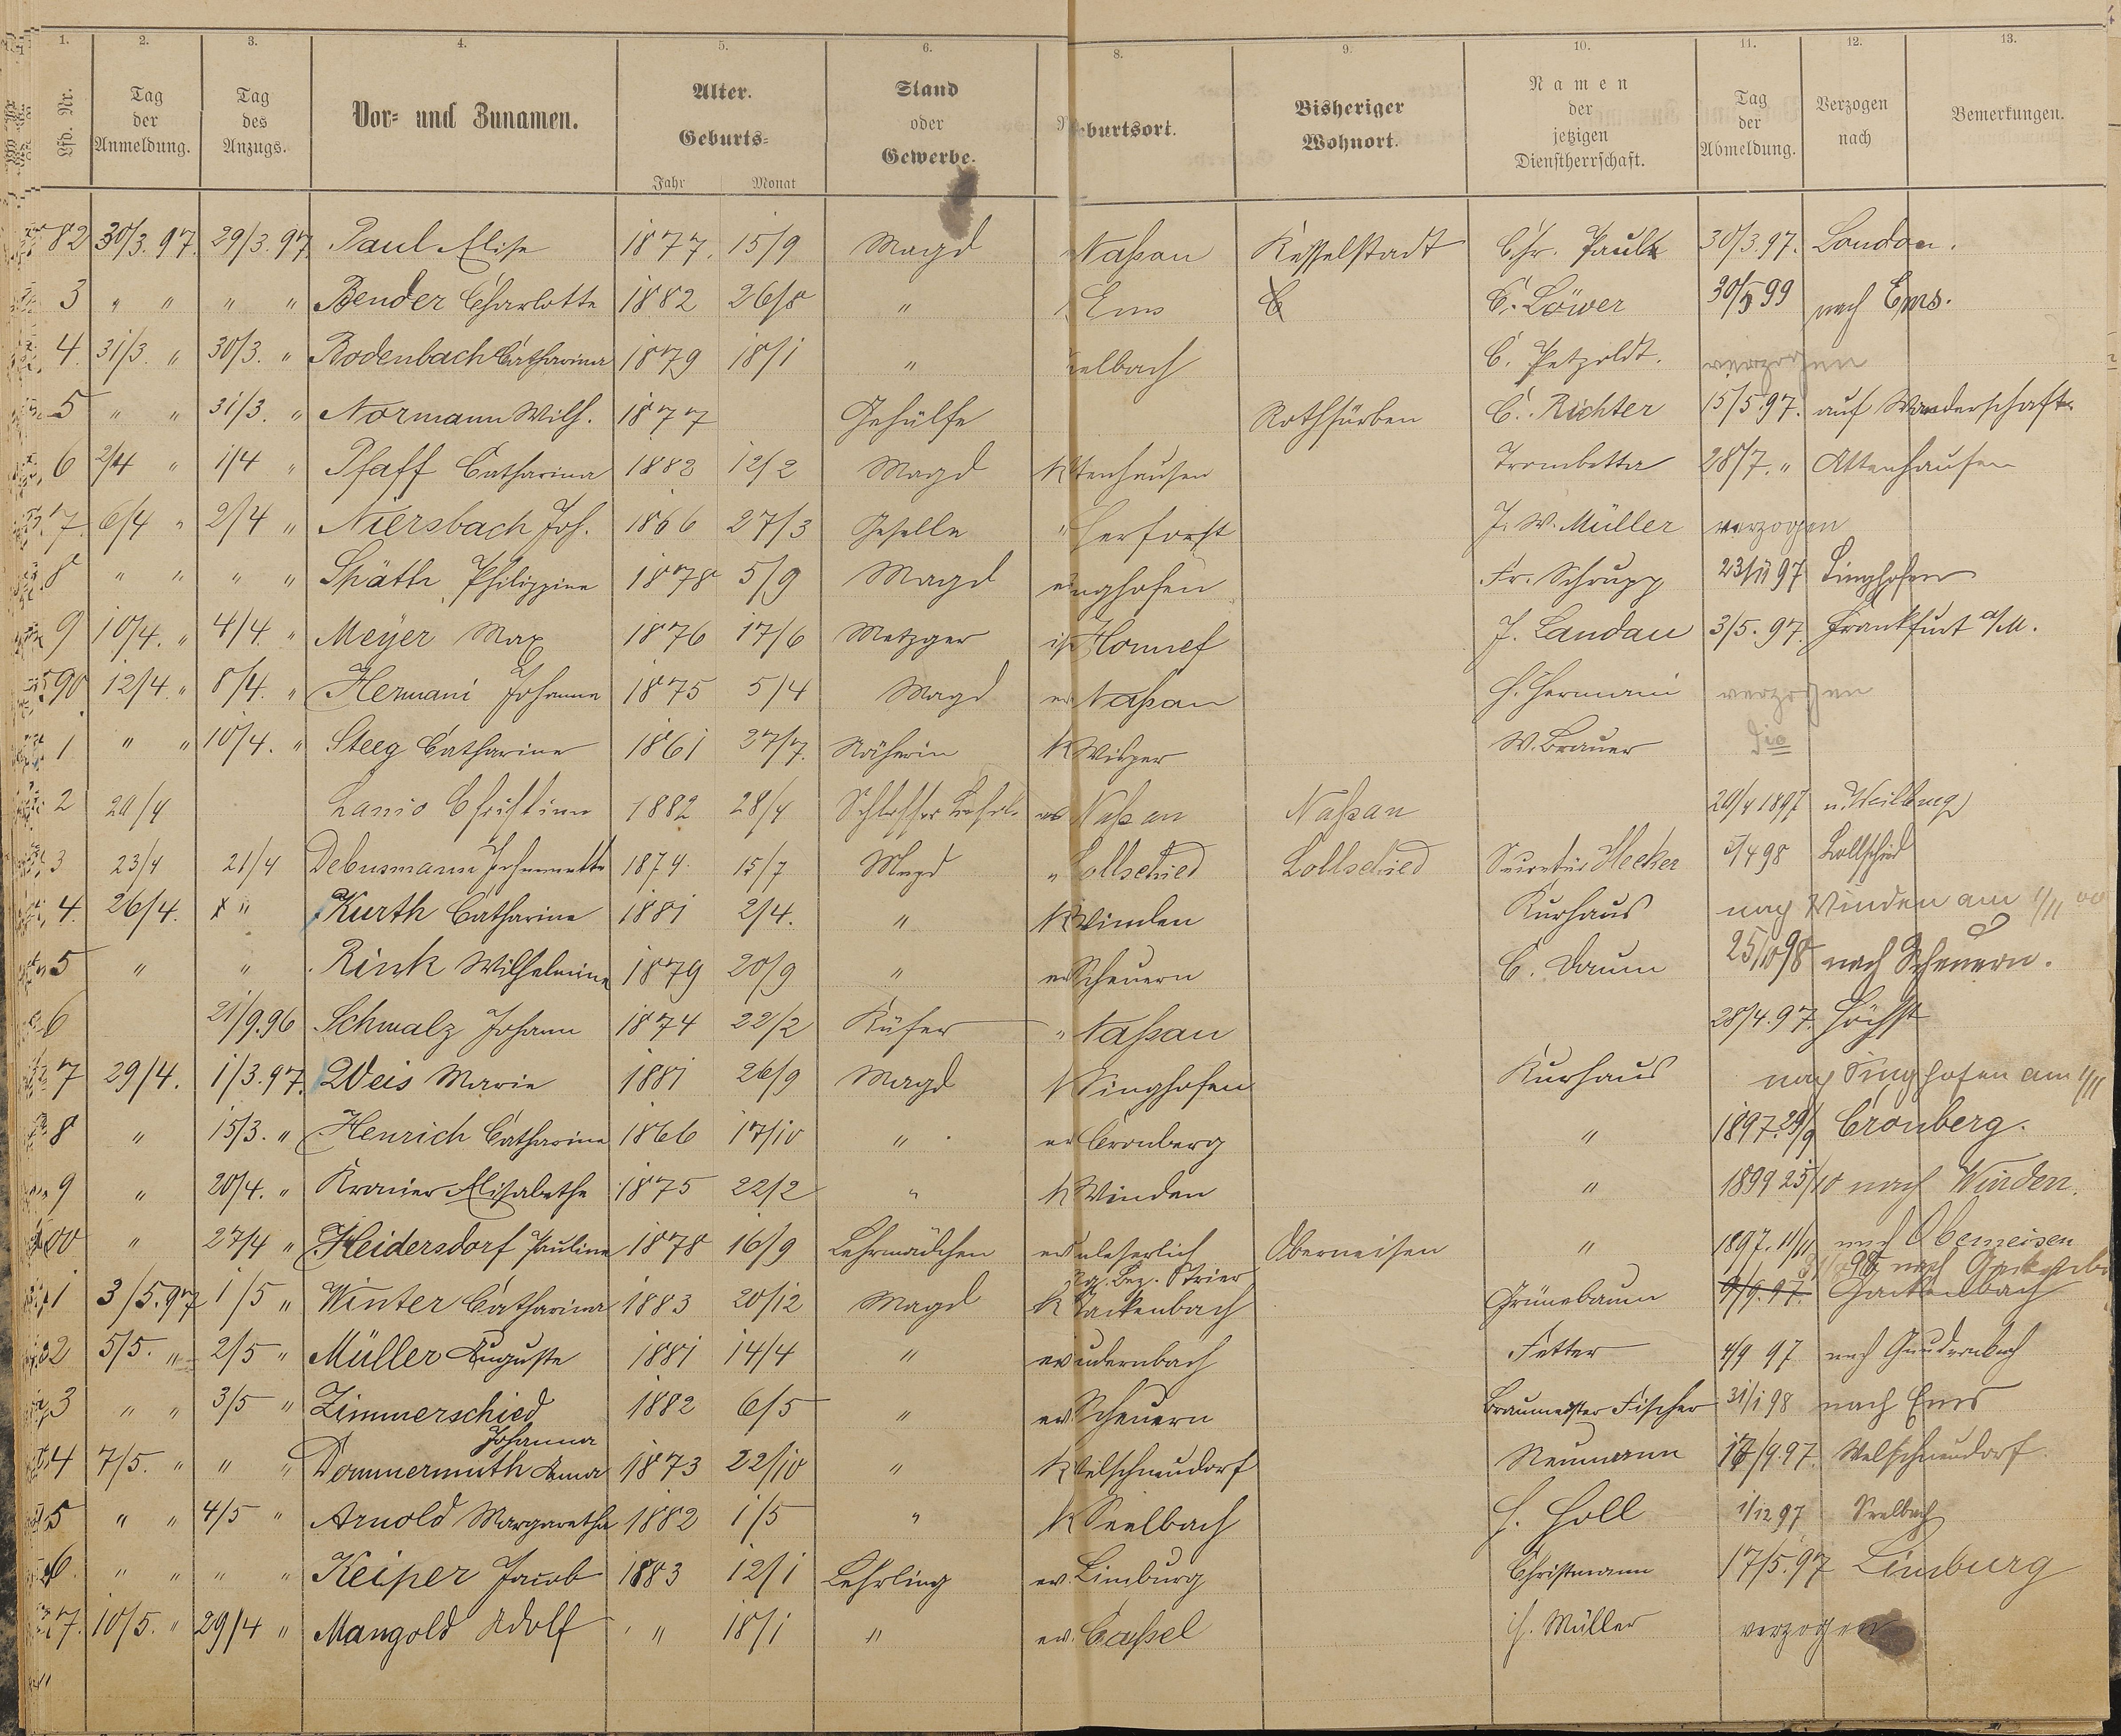 1. 2. 3. 4. 5. 6. 8. 9. 10. 11. 12. 13.
Lfd. Nr. Tag der Anmeldung. Tag des Anzugs. Vor- und Zunamen. Alter. Geburts- Jahr Monat Stand oder Gewerbe. burtsort. Bisheriger Wohnort. Namen der jetzigen Dienstherrschaft. Tag der Abmeldung. Verzogen nach Bemerkungen.
82 30/3.97. 29/3.97. Paul Elise 1877. 15/9 Magd Naßau Kesselstadt Chr. Paul 30/3.97. London.
3 " " " " Bender Charlotte 1882 26/8 " Ems C. Löwer 30/5 99 nach Ems.
4. 31/3. " 30/3. " Rodenbach Catharina 1879 18/1 " elbach C. Petzoldt. verzogen
5 " " 31/3. " Normann Wilh. 1877 Gehülfe Rothsürben C. Richter 15/5.97. auf Wanderschaft
6 2/4 " 1/4 " Pfaff Catharina 1882 12/2 Magd K ttenhausen Trombetta 28/7. " Attenhausen
7. 6/4 " 2/4 " Niersbach Joh. 1866 27/3 Geselle " Herforst J. W. Müller verzogen
8 " " " " Späth Philippine 1878 5/9 Magd inghofen Fr. Schrupp 23/11 97 Singhofen
9 10/4. " 4/4. " Meyer Max 1876 17/6 Metzger is Honnef J. Landau 3/5.97. Frankfurt a/M.
90 12/4. " 8/4. " Hermani Johanna 1875 5/4 Magd ev Naßau H. Hermani verzogen
1 " " 10/4. " Steeg Catharine 1861 27/7. Näherin K Wisper W. Brauer dio
2 20/4 Lanio Christian 1882 28/4 Schlosser ev Naßau Naßau 20/4 1897 n. Weilburg
3 23/4 21/4 Debusmann Johannette 1874. 15/7 Magd " Lollschied Lollschied Secretär Hecker 5/4 98 Lollschied
4. 26/4. x " Kurth Catharine 1881 2/4. " K Winden Kurhaus nach Winden am 1/11 00
5 " " Rink Wilhelmine 1879 20/9 " ev Scheuern C. Daum 25/10 98 nach Scheuern.
6 21/9.96 Schmalz Johann 1874 22/2 Küfer " Naßau 28/4.97. Höchst
7 29/4. 1/3.97. Weis Marie 1881 26/9 Magd K Singhofen Kurhaus nach Singhofen am 1/11
8 " 15/3. " Henrich Catharine 1866 17/10 " ev Cronberg " 1897. 29/9 Cronberg.
9 " 20/4. " Kramer Elisabethe 1875 22/2 " K Winden " 1899 25/10 nach Winden.
00 " 27/4 " Heidersdorf Pauline 1878 16/9 Lehrmädchen ev unleserlich Oberneisen " 1897. 11/11 nach Oberneisen
Rg. Bez. Trier 98 nach
1 3/5.97 1/5 " Winter Catharina 1883 20/12 Magd K Gackenbach Grünebaum 9/9.97. Gackenbach
2 5/5. " 2/5 " Müller Auguste 1881 14/4 " ev udernbach Fetter 4/9 97 nach Gudernbach
3 " " 3/5 " Zimmerschied 1882 6/5 " ev Scheuern Braumeister Fischer 31/1 98 nach Ems
Johanna
4 7/5. " " " Dommermuth Anna 1873 22/10 " K Welschneudorf Neumann 17/9.97. Welschneudorf.
5 " " 4/5 " Arnold Margaretha 1882 1/5 " K Seelbach H. Holl 1/12 97 Seelbach
6. " " " " Keiper Jacob 1883 12/1 Lehrling ev. Limburg Christmann 17/5.97 Limburg
7. 10/5. " 29/4 " Mangold Adolf " 18/1 " ev. Caßel H. Müller verzogen